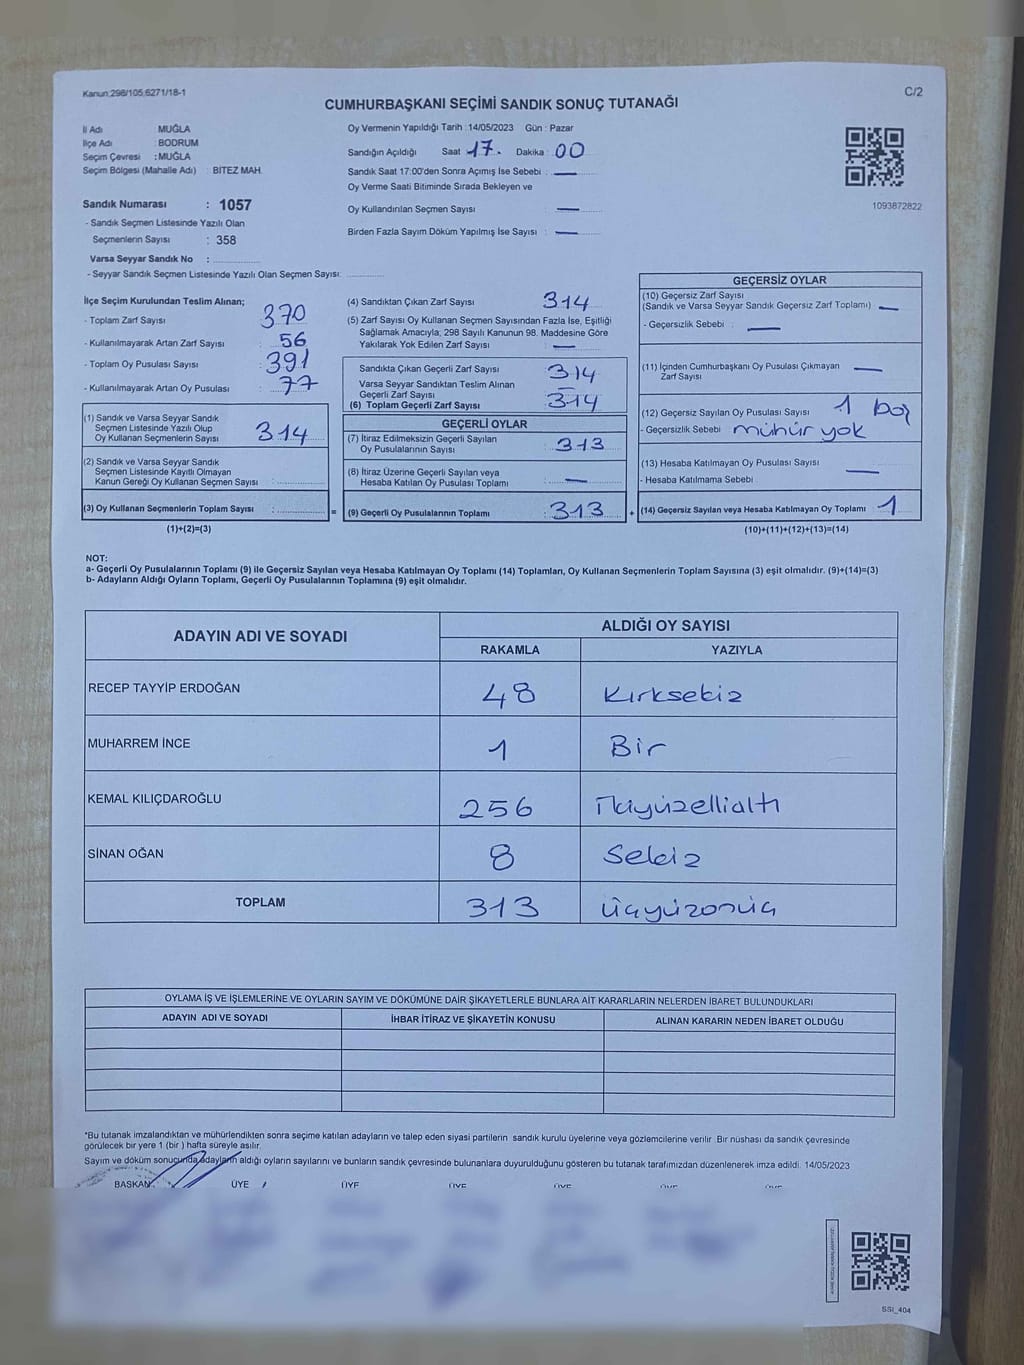 Kanun:298/105;6271/18-1
C/2
CUMHURBAŞKANI SEÇİMİ SANDIK SONUÇ TUTANAĞI
İl Adı : MUĞLA
İlçe Adı : BODRUM
Seçim Çevresi : MUĞLA
Seçim Bölgesi (Mahalle Adı) : BİTEZ MAH.
Sandık Numarası : 1057
- Sandık Seçmen Listesinde Yazılı Olan
Seçmenlerin Sayısı : 358
Varsa Seyyar Sandık No :
- Seyyar Sandık Seçmen Listesinde Yazılı Olan Seçmen Sayısı:
Oy Vermenin Yapıldığı Tarih : 14/05/2023 Gün : Pazar
Sandığın Açıldığı Saat 17. Dakika : 00
Sandık Saat 17:00'den Sonra Açımış İse Sebebi : —
Oy Verme Saati Bitiminde Sırada Bekleyen ve
Oy Kullandırılan Seçmen Sayısı —
Birden Fazla Sayım Döküm Yapılmış İse Sayısı : —
1093872822
İlçe Seçim Kurulundan Teslim Alınan;
- Toplam Zarf Sayısı : 370
- Kullanılmayarak Artan Zarf Sayısı : 56
- Toplam Oy Pusulası Sayısı : 391
- Kullanılmayarak Artan Oy Pusulası : 77
(1) Sandık ve Varsa Seyyar Sandık
Seçmen Listesinde Yazılı Olup
Oy Kullanan Seçmenlerin Sayısı : 314
(2) Sandık ve Varsa Seyyar Sandık
Seçmen Listesinde Kayıtlı Olmayan
Kanun Gereği Oy Kullanan Seçmen Sayısı :
(3) Oy Kullanan Seçmenlerin Toplam Sayısı :
(1)+(2)=(3)
=
(4) Sandıktan Çıkan Zarf Sayısı 314
(5) Zarf Sayısı Oy Kullanan Seçmen Sayısından Fazla İse, Eşitliği
Sağlamak Amacıyla, 298 Sayılı Kanunun 98. Maddesine Göre
Yakılarak Yok Edilen Zarf Sayısı : —
Sandıkta Çıkan Geçerli Zarf Sayısı : 314
Varsa Seyyar Sandıktan Teslim Alınan
Geçerli Zarf Sayısı : —
(6) Toplam Geçerli Zarf Sayısı : 314
GEÇERLİ OYLAR
(7) İtiraz Edilmeksizin Geçerli Sayılan
Oy Pusulalarının Sayısı : 313
(8) İtiraz Üzerine Geçerli Sayılan veya
Hesaba Katılan Oy Pusulası Toplamı : —
(9) Geçerli Oy Pusulalarının Toplamı : 313
+
GEÇERSİZ OYLAR
(10) Geçersiz Zarf Sayısı
(Sandık ve Varsa Seyyar Sandık Geçersiz Zarf Toplamı) —
- Geçersizlik Sebebi : —
(11) İçinden Cumhurbaşkanı Oy Pusulası Çıkmayan
Zarf Sayısı —
(12) Geçersiz Sayılan Oy Pusulası Sayısı 1 boş
- Geçersizlik Sebebi : mühür yok
(13) Hesaba Katılmayan Oy Pusulası Sayısı : —
- Hesaba Katılmama Sebebi
(14) Geçersiz Sayılan veya Hesaba Katılmayan Oy Toplamı 1
(10)+(11)+(12)+(13)=(14)
NOT:
a- Geçerli Oy Pusulalarının Toplamı (9) ile Geçersiz Sayılan veya Hesaba Katılmayan Oy Toplamı (14) Toplamları, Oy Kullanan Seçmenlerin Toplam Sayısına (3) eşit olmalıdır. (9)+(14)=(3)
b- Adayların Aldığı Oyların Toplamı, Geçerli Oy Pusulalarının Toplamına (9) eşit olmalıdır.
ADAYIN ADI VE SOYADI ALDIĞI OY SAYISI
RAKAMLA YAZIYLA
RECEP TAYYİP ERDOĞAN 48 Kırksekiz
MUHARREM İNCE 1 Bir
KEMAL KILIÇDAROĞLU 256 İkiyüzellialtı
SİNAN OĞAN 8 Sekiz
TOPLAM 313 Üçyüzonüç
OYLAMA İŞ VE İŞLEMLERİNE VE OYLARIN SAYIM VE DÖKÜMÜNE DAİR ŞİKAYETLERLE BUNLARA AİT KARARLARIN NELERDEN İBARET BULUNDUKLARI
ADAYIN ADI VE SOYADI İHBAR İTİRAZ VE ŞİKAYETİN KONUSU ALINAN KARARIN NEDEN İBARET OLDUĞU
*Bu tutanak imzalandıktan ve mühürlendikten sonra seçime katılan adayların ve talep eden siyasi partilerin sandık kurulu üyelerine veya gözlemcilerine verilir. Bir nüshası da sandık çevresinde
görülecek bir yere 1 (bir ) hafta süreyle asılır.
Sayım ve döküm sonucunda adayların aldığı oyların sayılarını ve bunların sandık çevresinde bulunanlara duyurulduğunu gösteren bu tutanak tarafımızdan düzenlenerek imza edildi. 14/05/2023
BAŞKAN ÜYE ÜYE ÜYE ÜYE ÜYE ÜYE
SSI_404